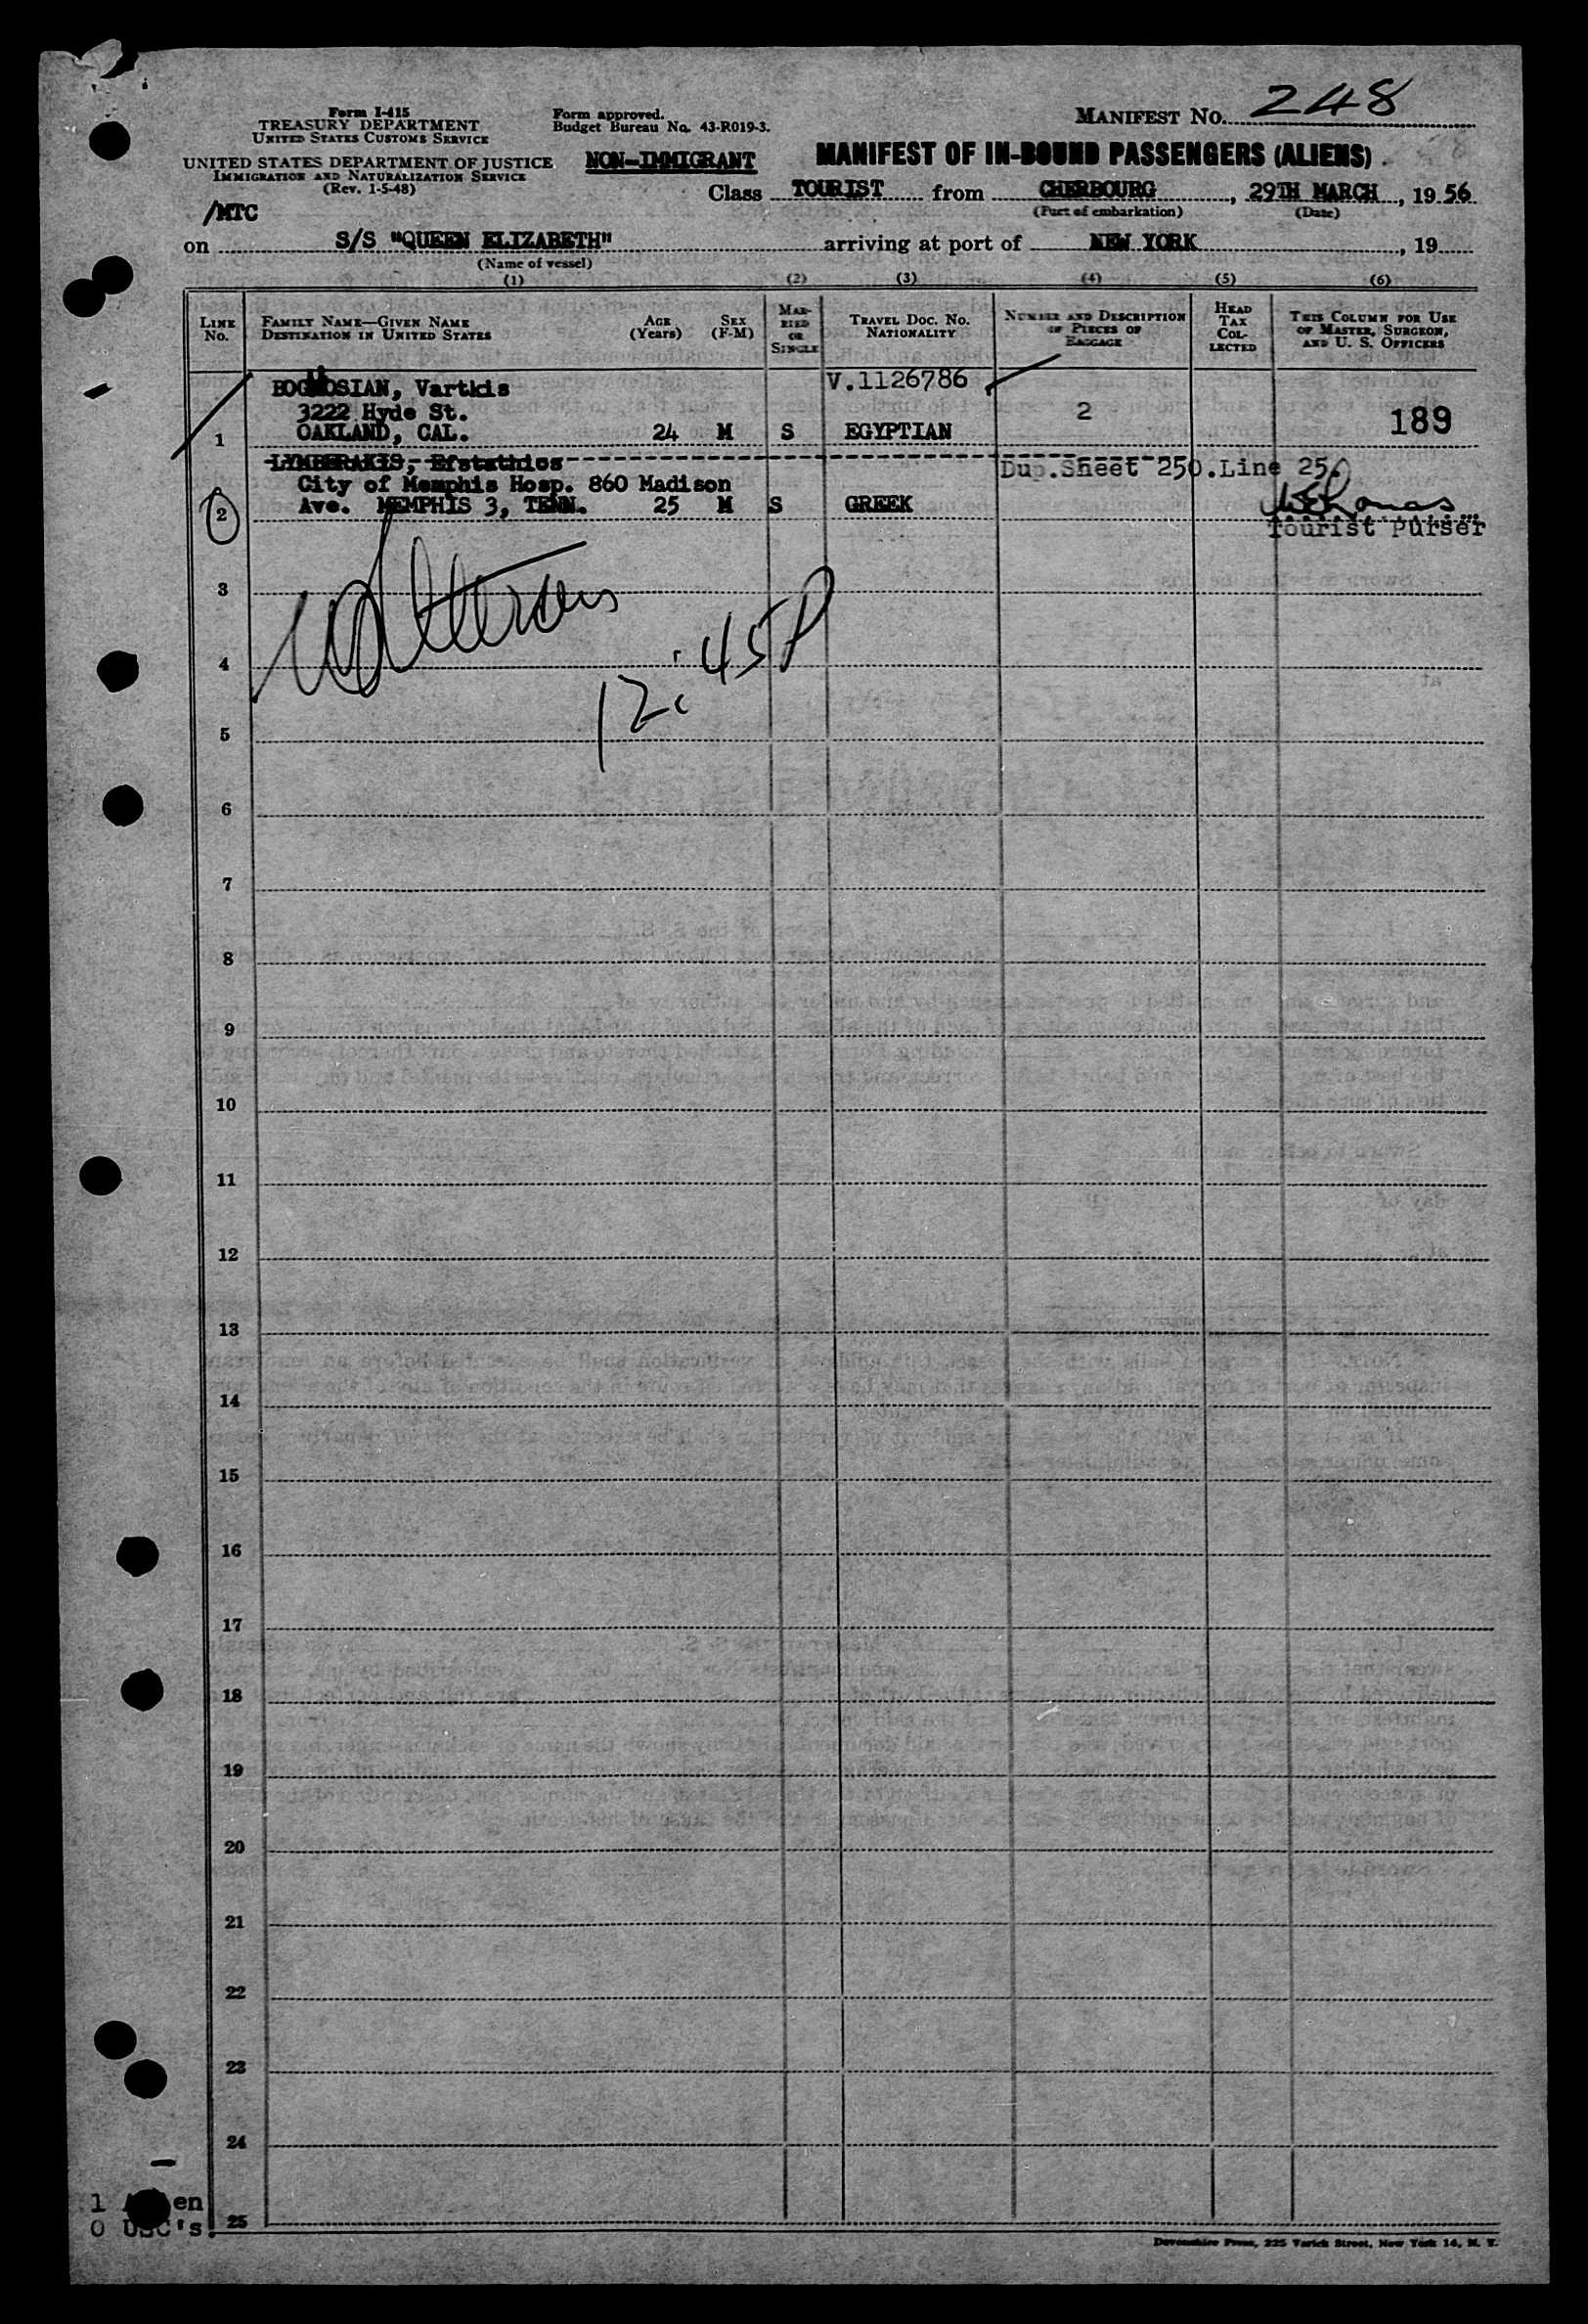 Form I-415
TREASURY DEPARTMENT
UNITED STATES CUSTOMS SERVICE
UNITED STATES DEPARTMENT OF JUSTICE
IMMIGRATION AND NATURALIZATION SERVICE
(Rev. 1-5-48)
/MTC
Form approved.
Budget Bureau No. 43-R019-3.
NON-IMMIGRANT
MANIFEST NO. 248
MANIFEST OF IN-BOUND PASSENGERS (ALIENS)
Class TOURIST from CHERBOURG, 29TH MARCH, 19 56
(Port of embarkation) (Date)
on S/S "QUEEN ELIZABETH" arriving at port of NEW YORK, 19
(Name of vessel)
(1) (2) (3) (4) (5) (6)
LINE No.
FAMILY NAME—GIVEN NAME
DESTINATION IN UNITED STATES
AGE (Years)
SEX (F-M)
MARRIED OR SINGLE
TRAVEL DOC. NO.
NATIONALITY
NUMBER AND DESCRIPTION OF PIECES OF BAGGAGE
HEAD TAX COLLECTED
THIS COLUMN FOR USE OF MASTER, SURGEON, AND U. S. OFFICERS
BOGHOSIAN, Vartkis V.1126786
3222 Hyde St. 2
1 OAKLAND, CAL. 24 M S EGYPTIAN 189
LYMBERAKIS, Efstathios Dup.Sheet 250.Line 25
City of Memphis Hosp. 860 Madison
2 Ave. MEMPHIS 3, TENN. 25 M S GREEK
Tourist Purser
3
12:45P
4
5
6
7
8
9
10
11
12
13
14
15
16
17
18
19
20
21
22
23
24
1 en
0 USC's
25
Devonshire Press, 225 Varick Street, New York 14, N. Y.